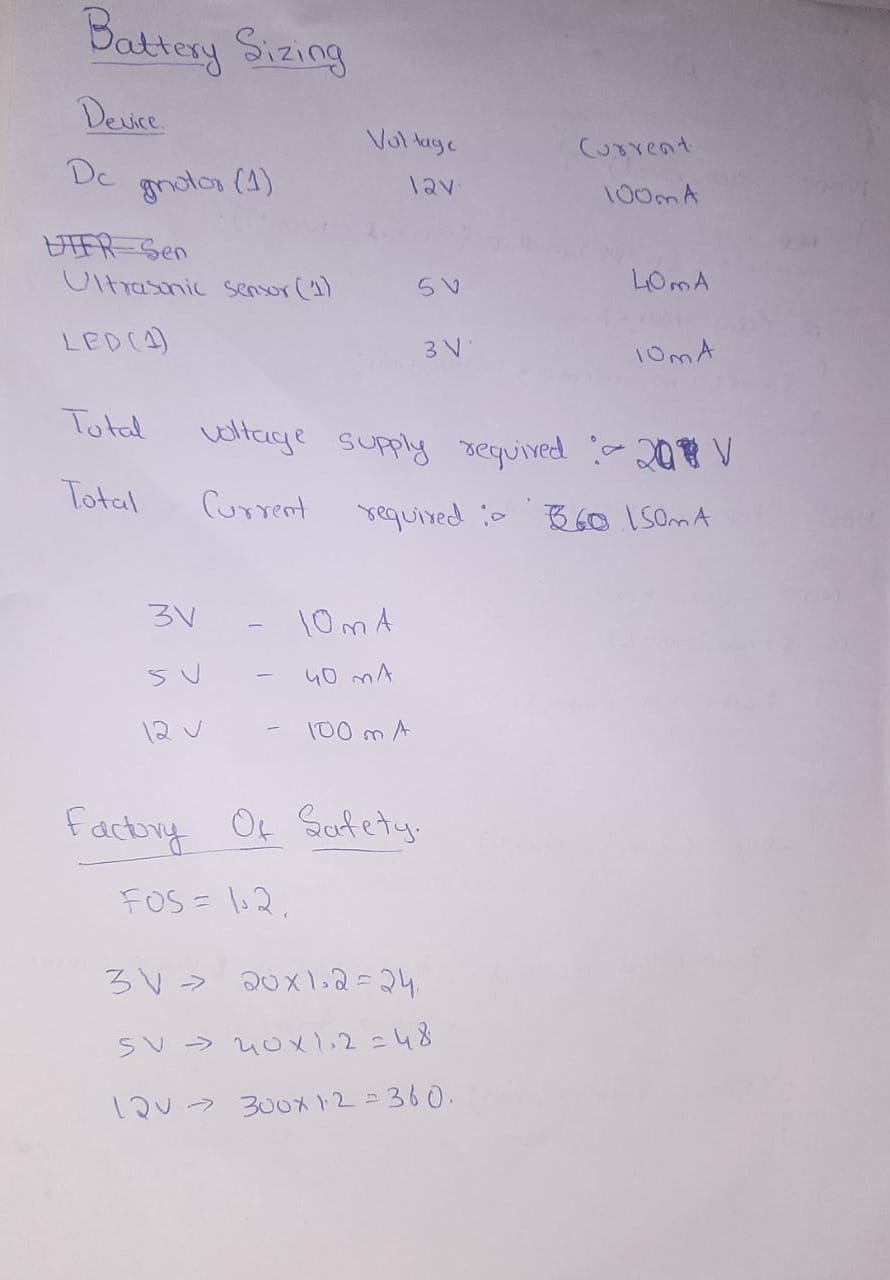 Battery Sizing
Device. Voltage Current
Dc motor (1) 12V 100mA
UIR Sen
Ultrasonic sensor (1) 5V 40mA
LED (1) 3V 10mA
Total voltage supply required :- 20 V
Total Current required :- 360 150mA
3V - 10mA
5V - 40 mA
12V - 100 mA
Factory Of Safety.
FOS = 1.2.
3V → 20x1.2=24.
5V → 40x1.2=48
12V → 300x1.2=360.